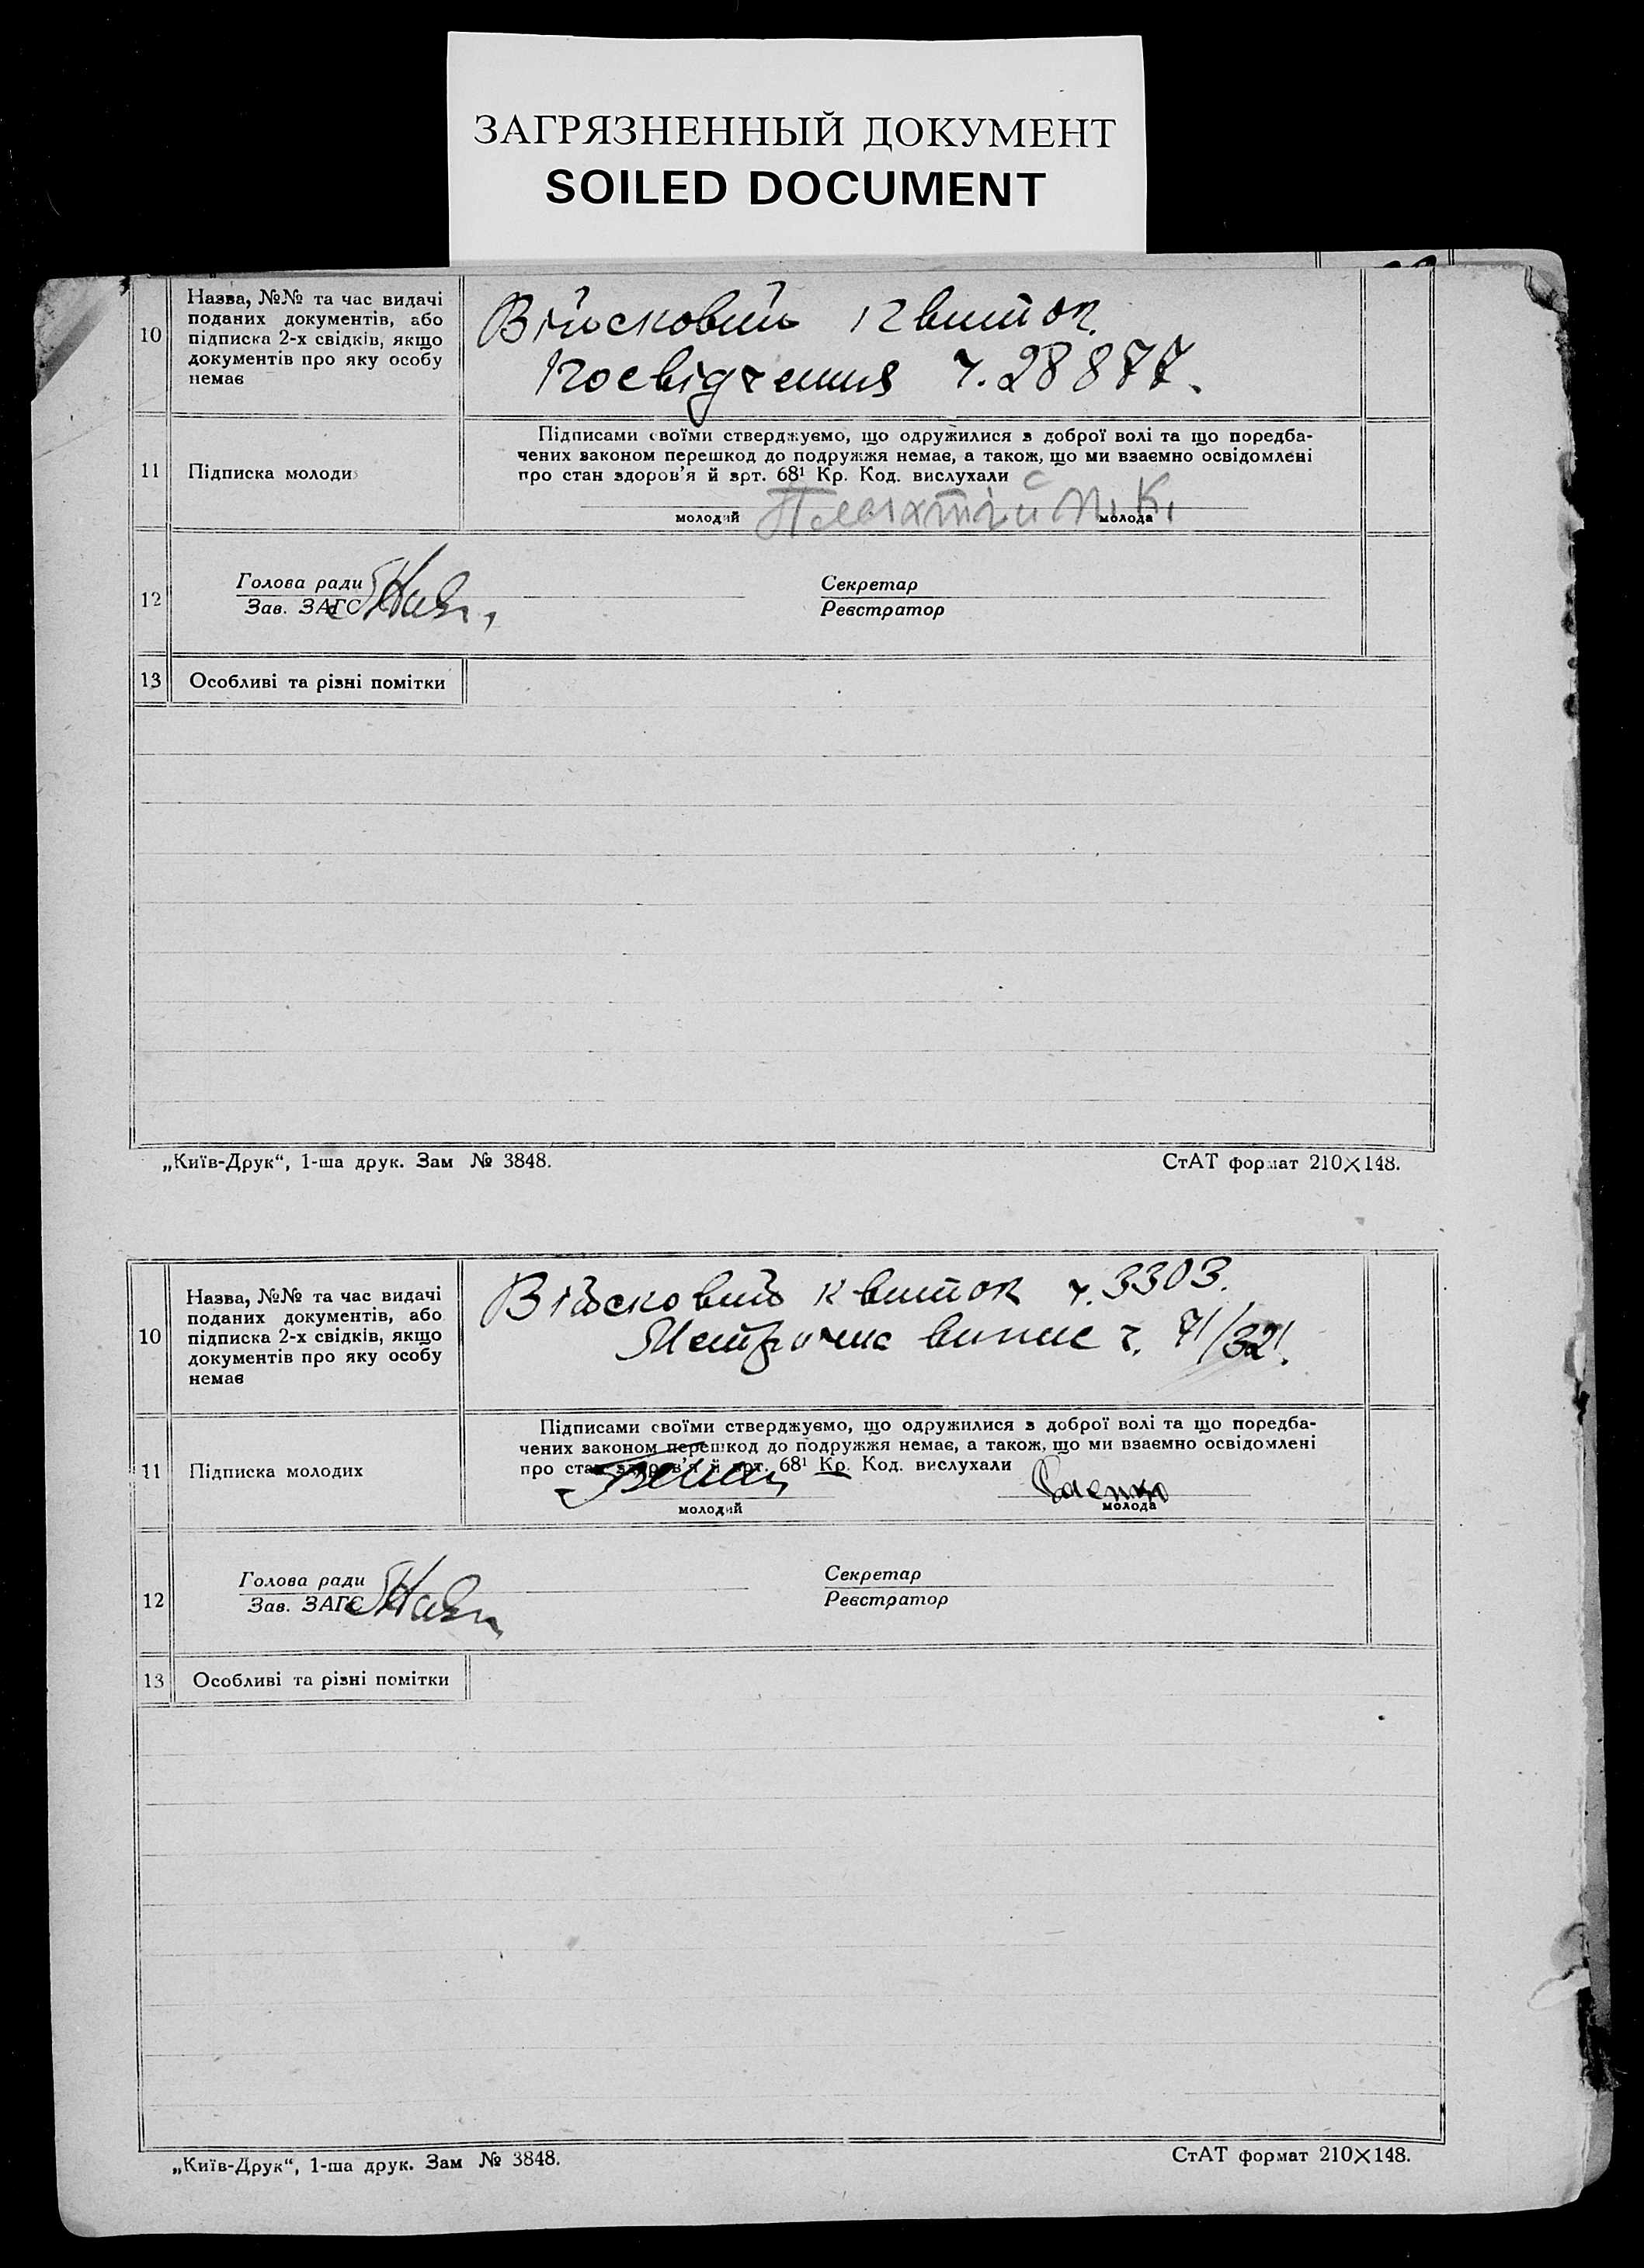 ЗАГРЯЗНЕННЫЙ ДОКУМЕНТ
SOILED DOCUMENT
10
Назва, №№ та час видачі
поданих документів, або
підписка 2-х свідків, якщо
документів про яку особу
немає
Військовий квиток.
Посвідчення ч. 28877.
11
Підписка молоди
Підписами своїми стверджуємо, що одружилися з доброї волі та що поредба-
чених законом перешкод до подружжя немає, а також, що ми взаємно освідомлені
про стан здоров'я й арт. 68¹ Кр. Код. вислухали
молодий
молода
12
Голова ради
Зав. ЗАГС
Секретар
Реєстратор
13
Особливі та різні помітки
„Київ-Друк“, 1-ша друк. Зам № 3848.
СтАТ формат 210×148.
10
Назва, №№ та час видачі
поданих документів, або
підписка 2-х свідків, якщо
документів про яку особу
немає
Військовий квиток ч. 3303.
Метричне випис ч. 71/32.
11
Підписка молодих
Підписами своїми стверджуємо, що одружилися з доброї волі та що поредба-
чених законом перешкод до подружжя немає, а також, що ми взаємно освідомлені
про стан здоров'я й арт. 68¹ Кр. Код. вислухали
молодий
молода
12
Голова ради
Зав. ЗАГС
Секретар
Реєстратор
13
Особливі та різні помітки
„Київ-Друк“, 1-ша друк. Зам № 3848.
СтАТ формат 210×148.